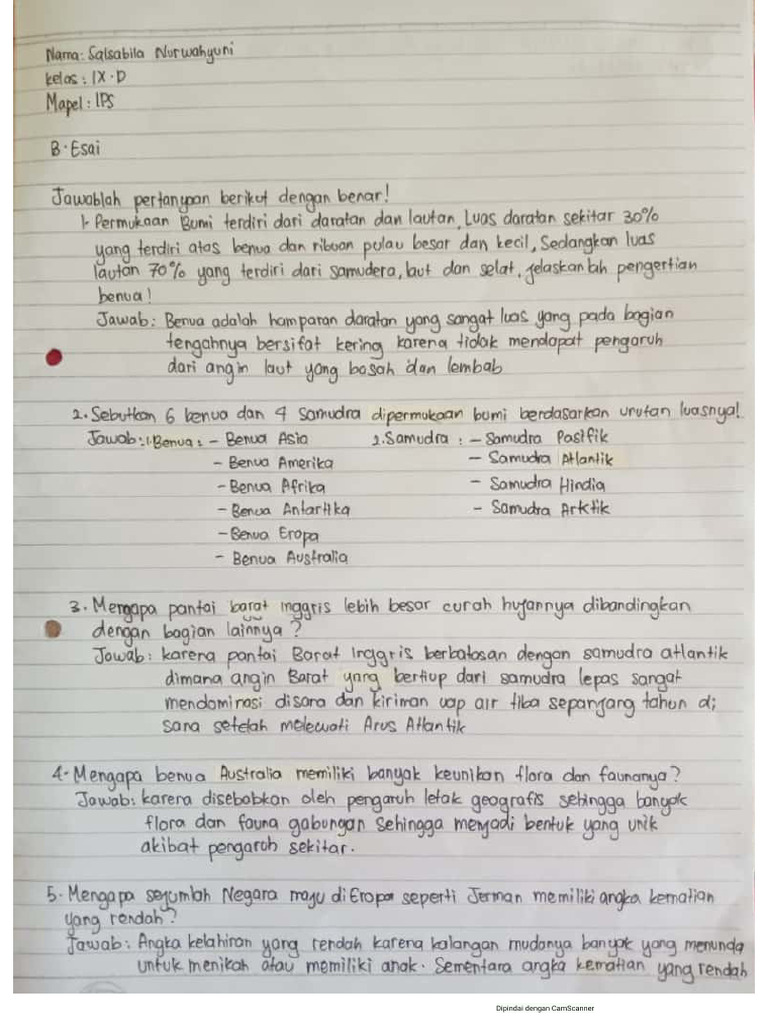 Nama: Salsabila Nurwahyuni
kelas : IX.D
Mapel : IPS
B. Esai
Jawablah pertanyaan berikut dengan benar!
1. Permukaan Bumi terdiri dari daratan dan lautan, Luas daratan sekitar 30%
yang terdiri atas benua dan ribuan pulau besar dan kecil, Sedangkan luas
lautan 70% yang terdiri dari samudera, laut dan selat, jelaskan lah pengertian
benua!
Jawab : Benua adalah hamparan daratan yang sangat luas yang pada bagian
tengahnya bersifat kering karena tidak mendapat pengaruh
dari angin laut yang basah dan lembab
2. Sebutkan 6 benua dan 4 Samudra dipermukaan bumi berdasarkan urutan luasnya!
Jawab : 1. Benua : - Benua Asia 2. Samudra : - Samudra Pasifik
- Benua Amerika - Samudra Atlantik
- Benua Afrika - Samudra Hindia
- Benua Antartika - Samudra Arktik
- Benua Eropa
- Benua Australia
3. Mengapa pantai barat inggris lebih besar curah hujannya dibandingkan
dengan bagian lainnya ?
Jawab : karena pantai Barat Inggris berbatasan dengan samudra atlantik
dimana angin Barat yang bertiup dari samudra lepas sangat
mendominasi disara dan kiriman uap air tiba sepanjang tahun di
sana setelah melewati Arus Atlantik
4. Mengapa benua Australia memiliki banyak keunikan flora dan faunanya ?
Jawab : karena disebabkan oleh pengaruh letak geografis sehingga banyak
flora dan fauna gabungan sehingga menjadi bentuk yang unik
akibat pengaruh sekitar.
5. Mengapa sejumlah Negara maju di Eropa seperti Jerman memiliki angka kematian
yang rendah ?
Jawab : Angka kelahiran yang rendah karena kalangan mudanya banyak yang menunda
untuk menikah atau memiliki anak. Sementara angka kematian yang rendah
Dipindai dengan CamScanner